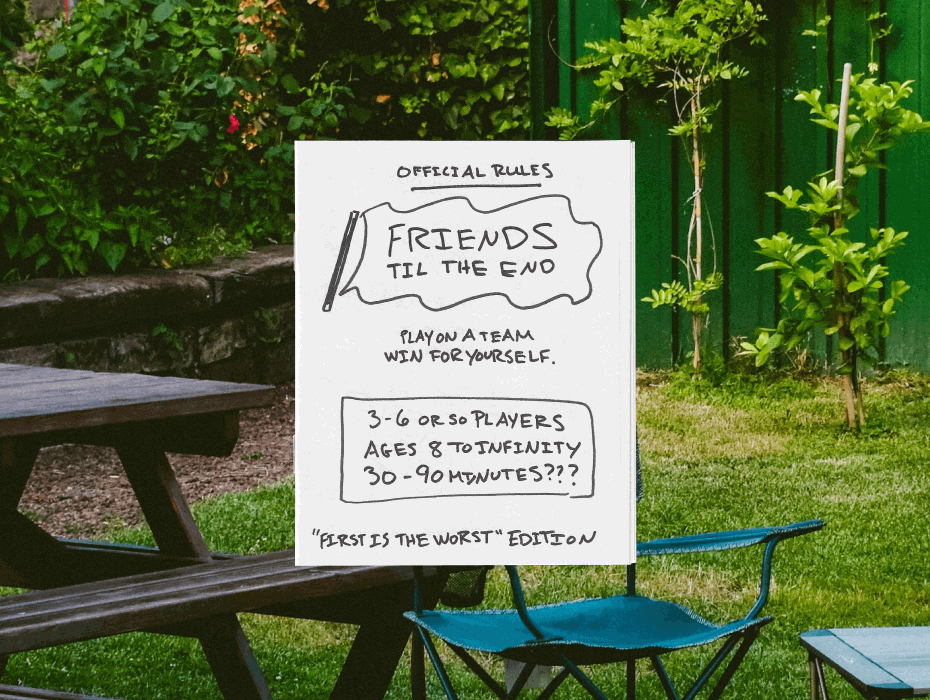 OFFICIAL RULES
FRIENDS
TIL THE END
PLAY ON A TEAM
WIN FOR YOURSELF.
3-6 OR SO PLAYERS
AGES 8 TO INFINITY
30-90 MINUTES???
"FIRST IS THE WORST" EDITION